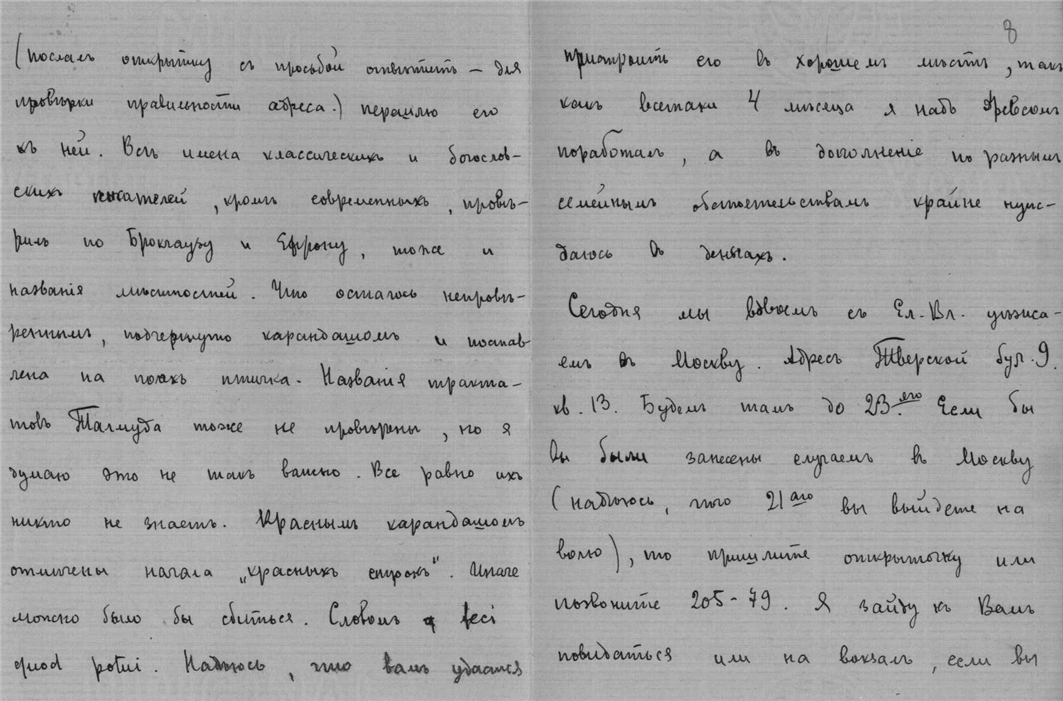 (послалъ открытку съ просьбой отвѣтить – для
провѣрки правильности адреса.) перешлю его
къ ней. Всѣ имена классическихъ и богослов-
скихъ писателей, кромѣ современныхъ, провѣ-
рилъ по Брокгаузу и Ефрону, тоже и
названія мѣстностей. Что осталось непровѣ-
реннымъ, подчеркнуто карандашомъ и постав-
лена на поляхъ птичка. Названія тракта-
товъ Талмуда тоже не провѣрены, но я
думаю это не такъ важно. Все равно ихъ
никто не знаетъ. Краснымъ карандашомъ
отмѣчены начала „красныхъ строкъ". Иначе
можно было бы сбиться. Словомъ feci
quod potui. Надѣюсь, что вамъ удастся
8
пристроить его въ хорошемъ мѣстѣ, такъ
какъ всетаки 4 мѣсяца я надъ Древсомъ
поработалъ, а въ дополненіе по разнымъ
семейнымъ обстоятельствамъ крайне нуж-
даюсь въ деньгахъ.
Сегодня мы вдвоемъ съ Ел. Вл. уѣзжа-
емъ въ Москву. Адресъ Тверской бул. 9.
кв. 13. Будемъ тамъ до 23-яго. Если бы
Вы были занесены случаемъ въ Москву
(надѣюсь, что 21аго вы выйдете на
волю), то пришлите открыточку или
позвоните 205-79. Я зайду къ Вамъ
повидаться или на вокзалъ, если вы